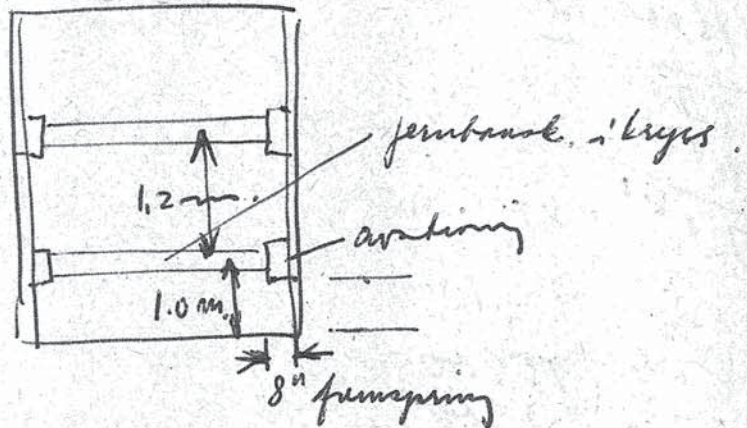 jernbansk. i kryss.
1,2 m.
avstivning
1.0 m.
8" fremspring